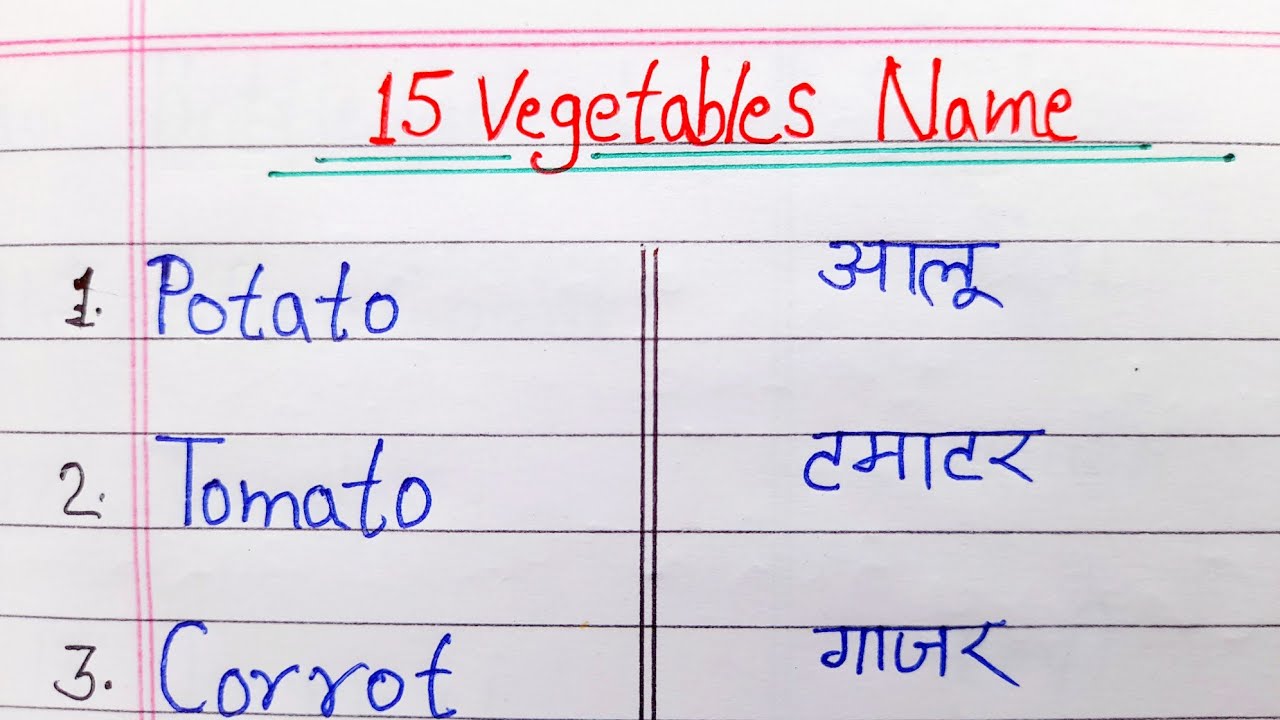 15 Vegetables Name
1. Potato आलू
2. Tomato टमाटर
3. Corrot गाजर